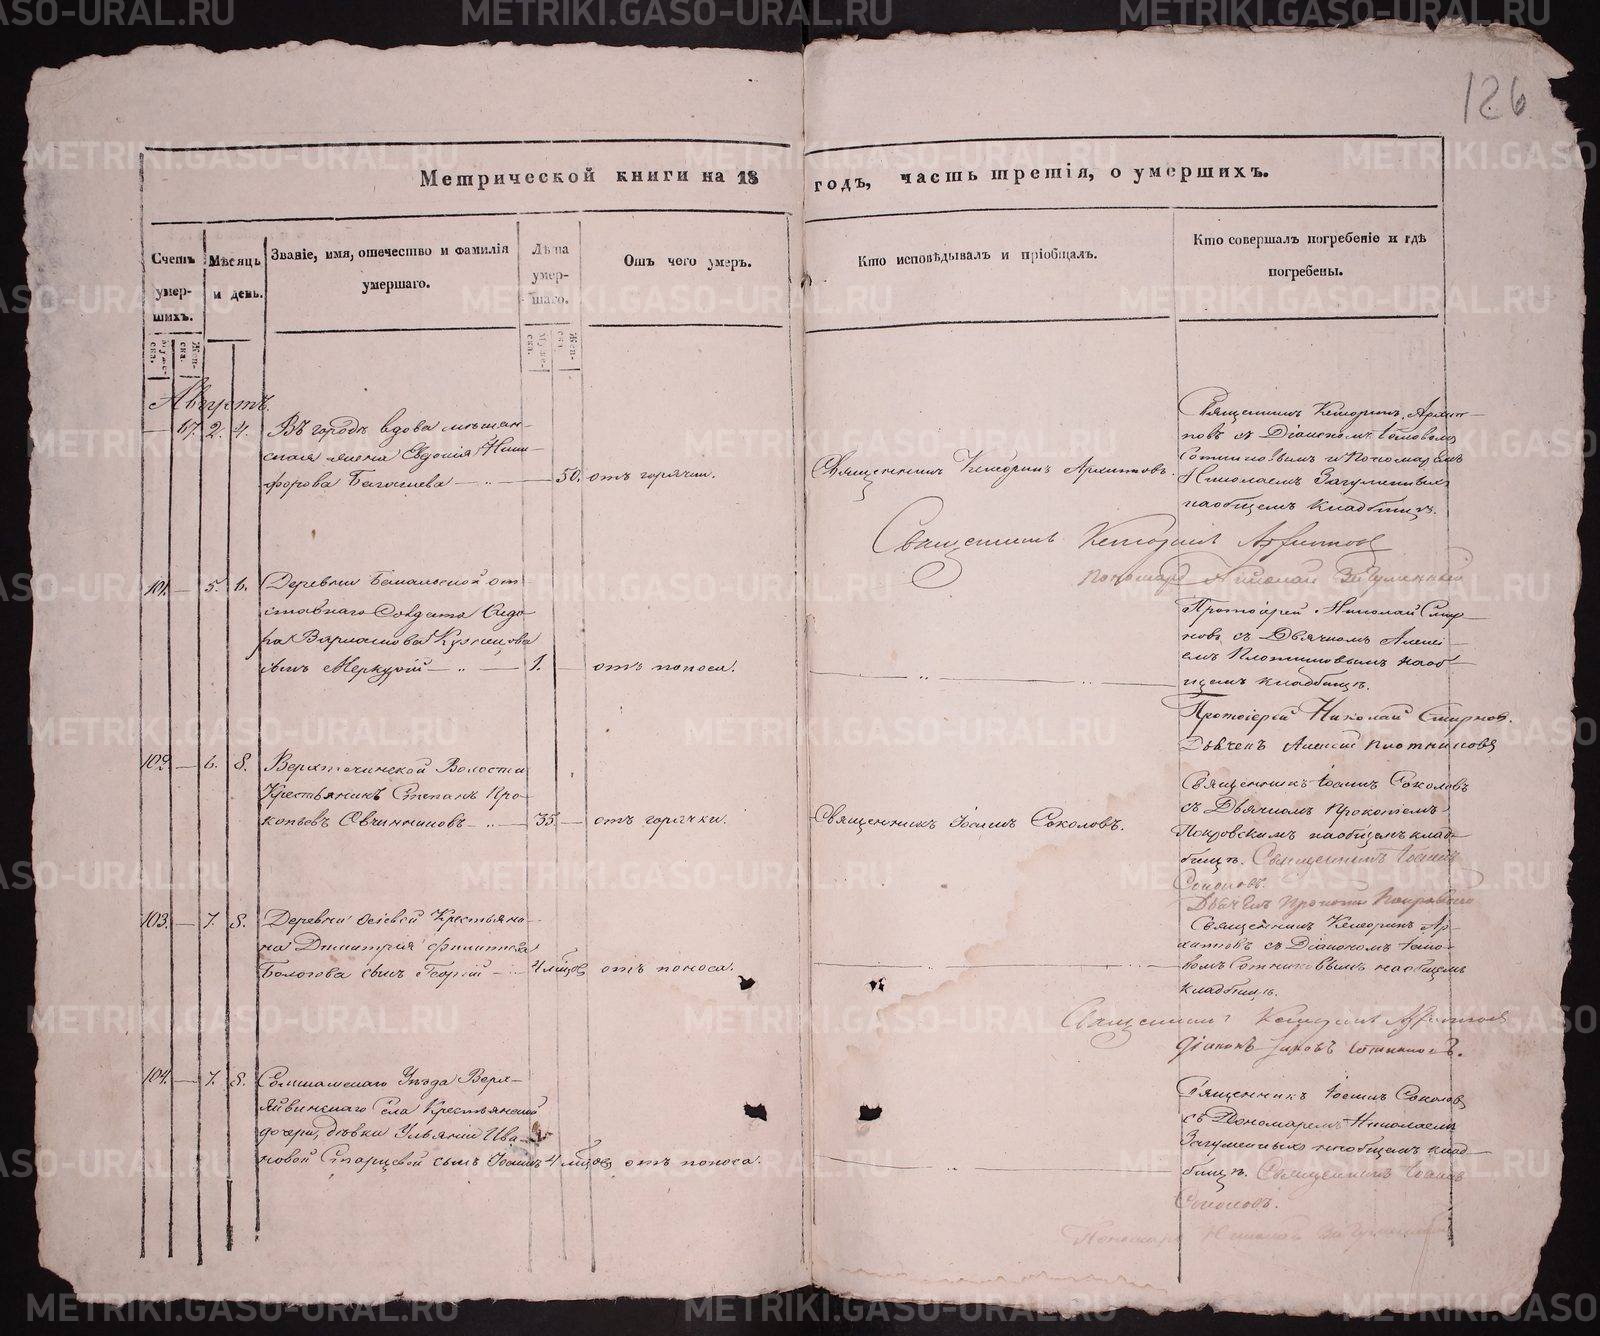 126
Метрической книги на 18 годъ, часть третія, о умершихъ.
Счетъ умер-
шихъ.
Мѣсяцъ
и день.
Званіе, имя, отечество и фамилія
умершаго.
Лѣта
умер-
шаго.
Отъ чего умеръ.
Кто исповѣдывалъ и пріобщалъ.
Кто совершалъ погребеніе и гдѣ
погребены.
Муже-
ска.
Жен-
ска.
Муже-
ска.
Жен-
ска.
Августъ.
67. 2. 4. Въ городѣ вдова мѣщан-
ская жена Евдокія Ники-
форова 50. отъ горячки.
Священникъ Архиповъ.
Священникъ Архип-
повъ съ Діакономъ Іаковомъ
Сотниковымъ и Пономаремъ
Николаемъ Загуменныхъ
на общемъ кладбищѣ.
Священникъ
Пономарь Николай Загуменный
101. 5. 6. Деревни от
ставнаго Солдата Сидо-
ра Варламова Кузнецова
сынъ Меркурій 1. отъ поноса.
Протоіерей Николай Смир-
новъ съ Дьячкомъ Алексѣ-
емъ Плотниковымъ на об-
щемъ кладбищѣ.
Протоіерей Николай Смирнов.
Дьячекъ Алексѣй Плотниковъ
102. 6. 8. Волости
Крестьянинъ Степанъ Про-
копьевъ Овчинниковъ 35 отъ горячки.
Священникъ Іоаннъ Соколовъ.
Священникъ Іоаннъ Соколовъ
съ Дьячкомъ Прокопіемъ
Покровскимъ на общемъ клад-
бищѣ. Священникъ Іоаннъ
Соколовъ.
Дьячекъ Прокопій Покровскій
103. 7. 8. Деревни Крестьяни-
на Димитрія Филиппова
сынъ Георгій 4 мѣсяцовъ отъ поноса.
Священникъ Ар-
хиповъ съ Діакономъ Іако-
вомъ Сотниковымъ на общемъ
кладбищѣ.
Священникъ
Діаконъ Іаковъ Сотниковъ.
104. 7. 8. Соликамскаго Уѣзда Верх-
яйвинскаго Села Крестьянской
дочери, дѣвки Ульяніи Ива-
новой Старцевой сынъ Іоаннъ 4 мѣсяцовъ отъ поноса.
Священникъ Іоаннъ Соколовъ
съ Пономаремъ Николаемъ
Загуменныхъ на общемъ клад-
бищѣ. Священникъ Іоаннъ
Соколовъ.
Пономарь Николай
METRIKI.GASO-URAL.RU